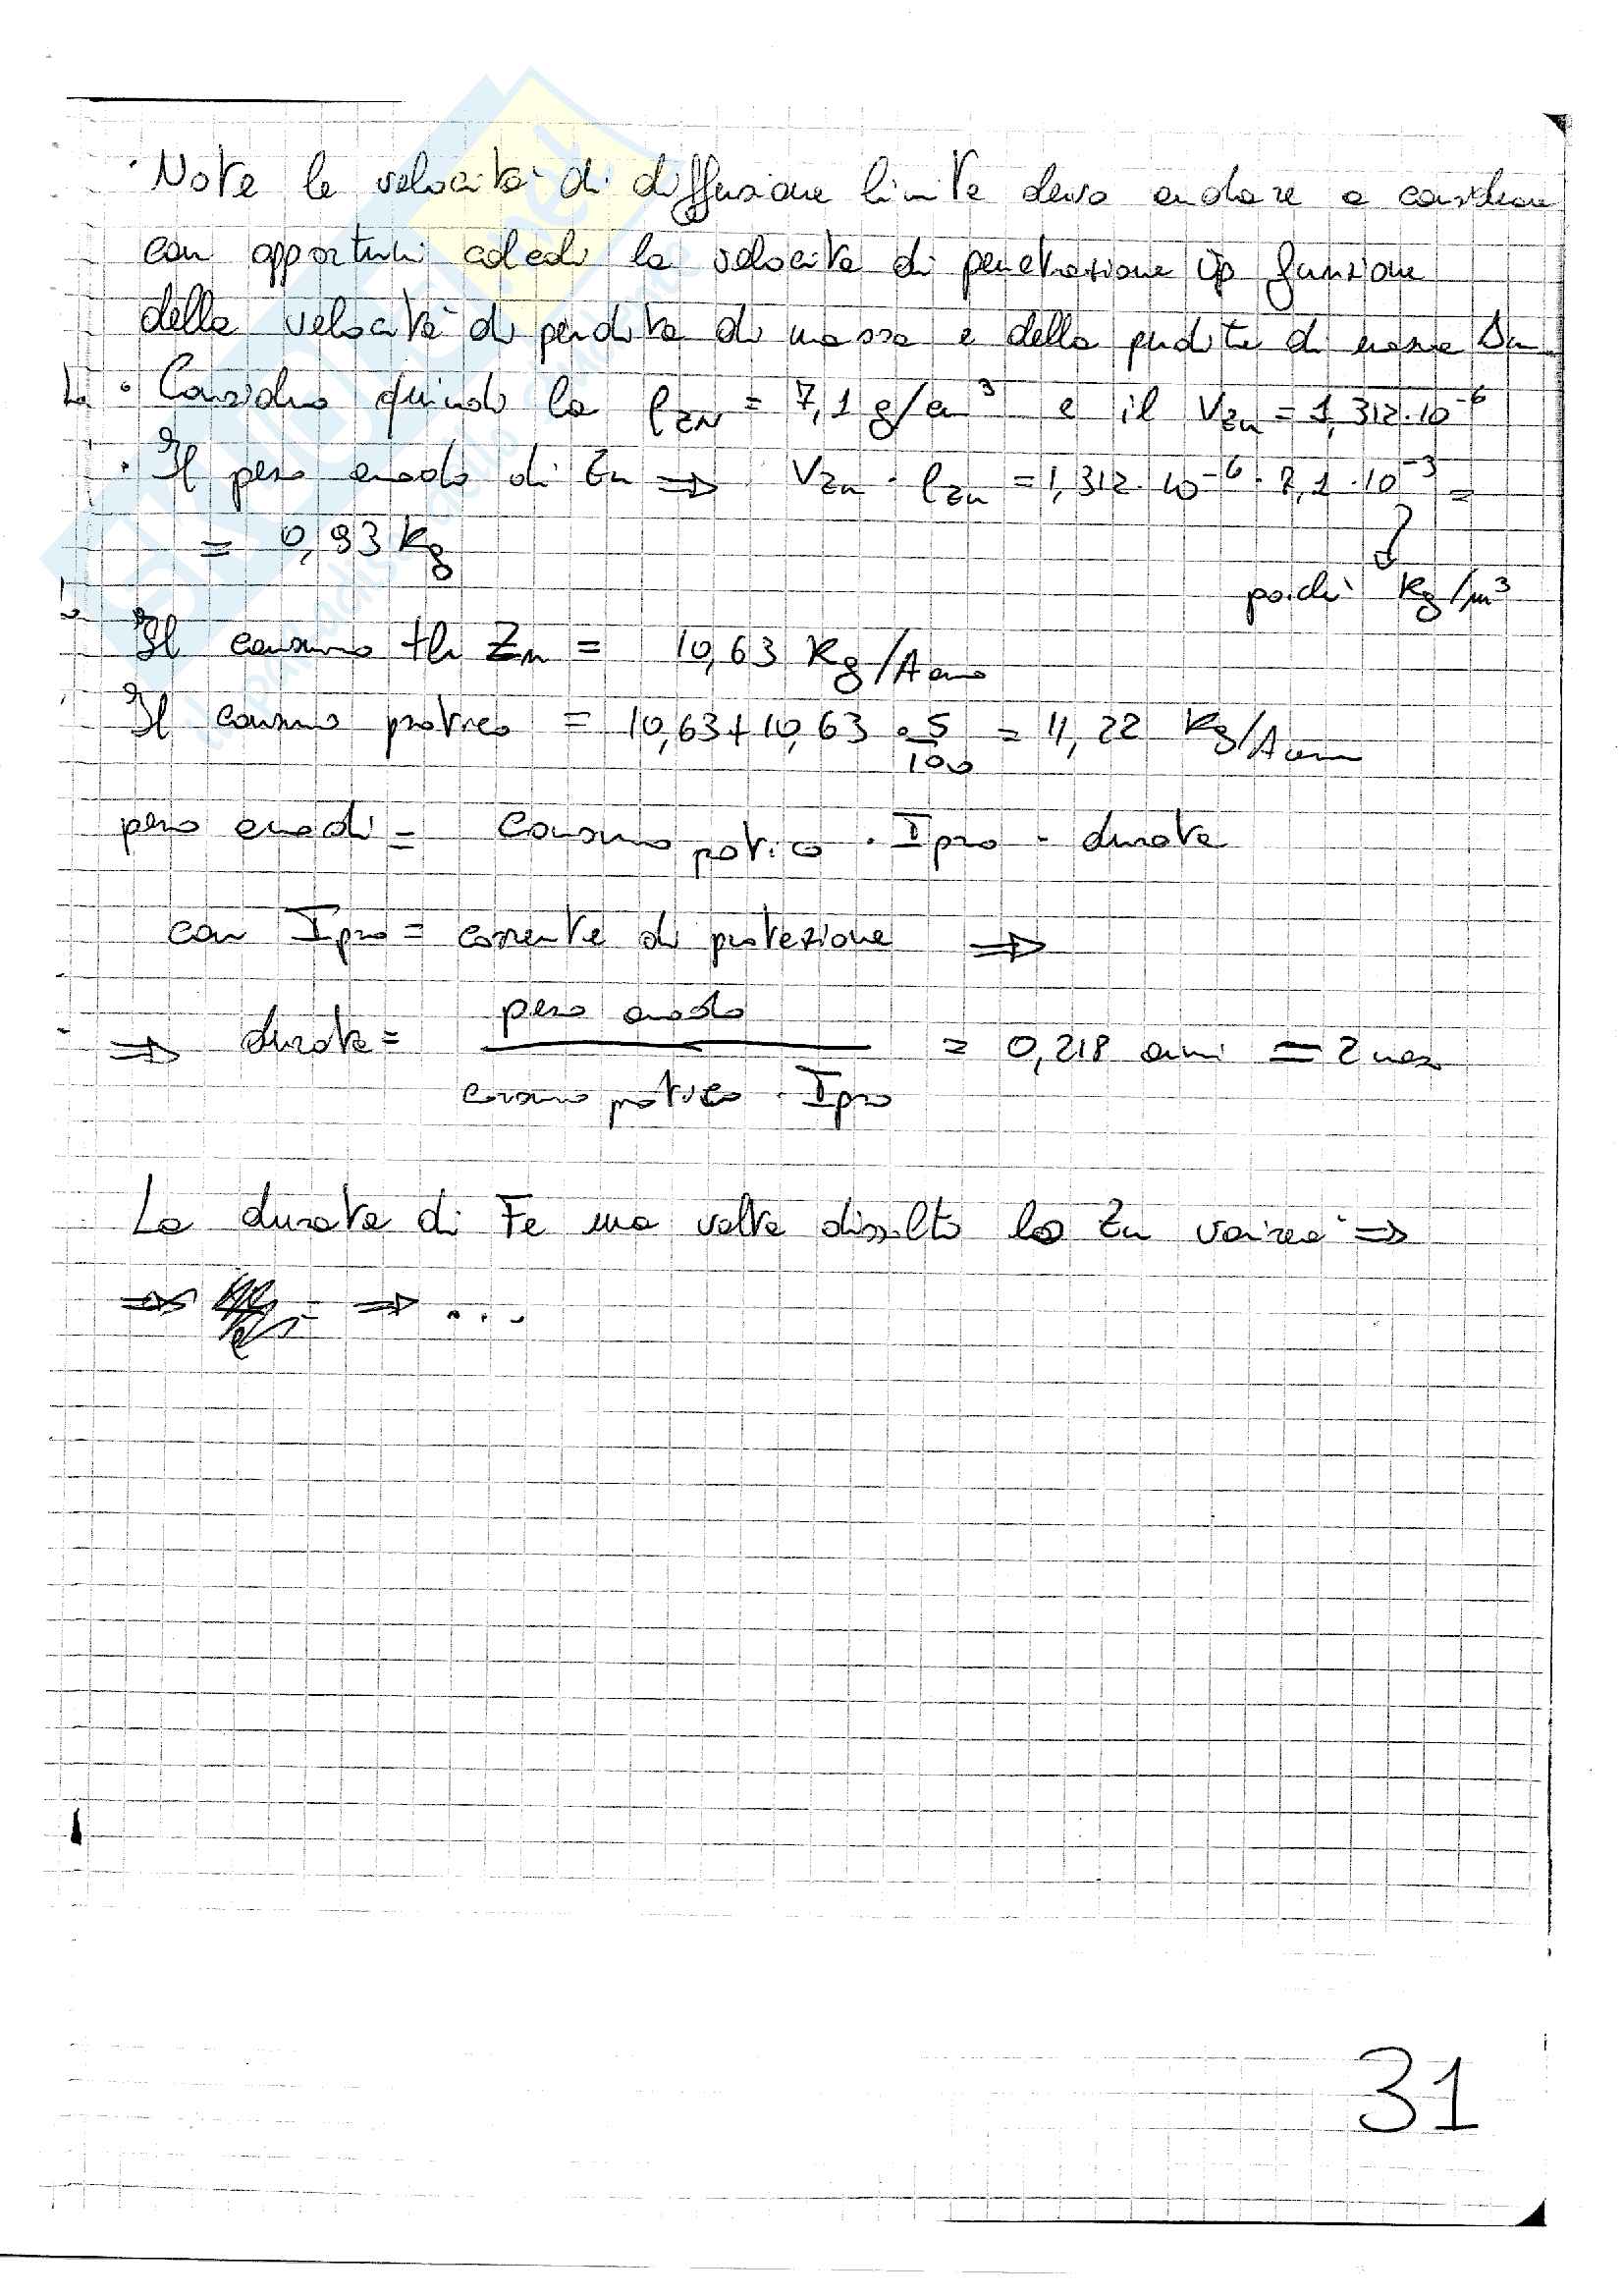 · Nota la velocità di diffusione limite devo andare a considerare
con opportuni calcoli la velocità di penetrazione Vp funzione
della velocità di perdita di massa e della perdita di massa Δm
· Considero quindi la ρZN = 7,1 g/cm³ e il VZn = 1,312·10⁻⁶
· Il peso anodo di Zn ⇒ VZn · ρZn = 1,312·10⁻⁶·7,1·10⁻³ =
= 0,93 Kg
poichè Kg/m³
Il consumo th Zn = 10,63 Kg/A anno
Il consumo pratico = 10,63+10,63·5/100 = 11,22 Kg/A anno
peso anodi = Consumo pratico · Ipro · durata
con Ipro = corrente di protezione ⇒
⇒ durata = peso anodo / consumo pratico · Ipro = 0,218 anni = 2 mesi
La durata di Fe una volta dissolto lo Zn varrà ⇒
⇒ ⇒ ...
31